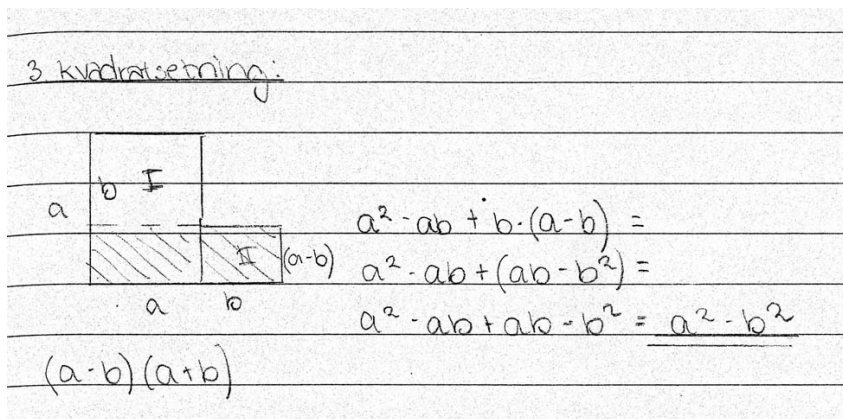 3 kvadratsetning:
b I
a
II (a-b)
a b
a² - ab + b·(a-b) =
a² - ab + (ab - b²) =
a² - ab + ab - b² = a² - b²
(a-b)(a+b)